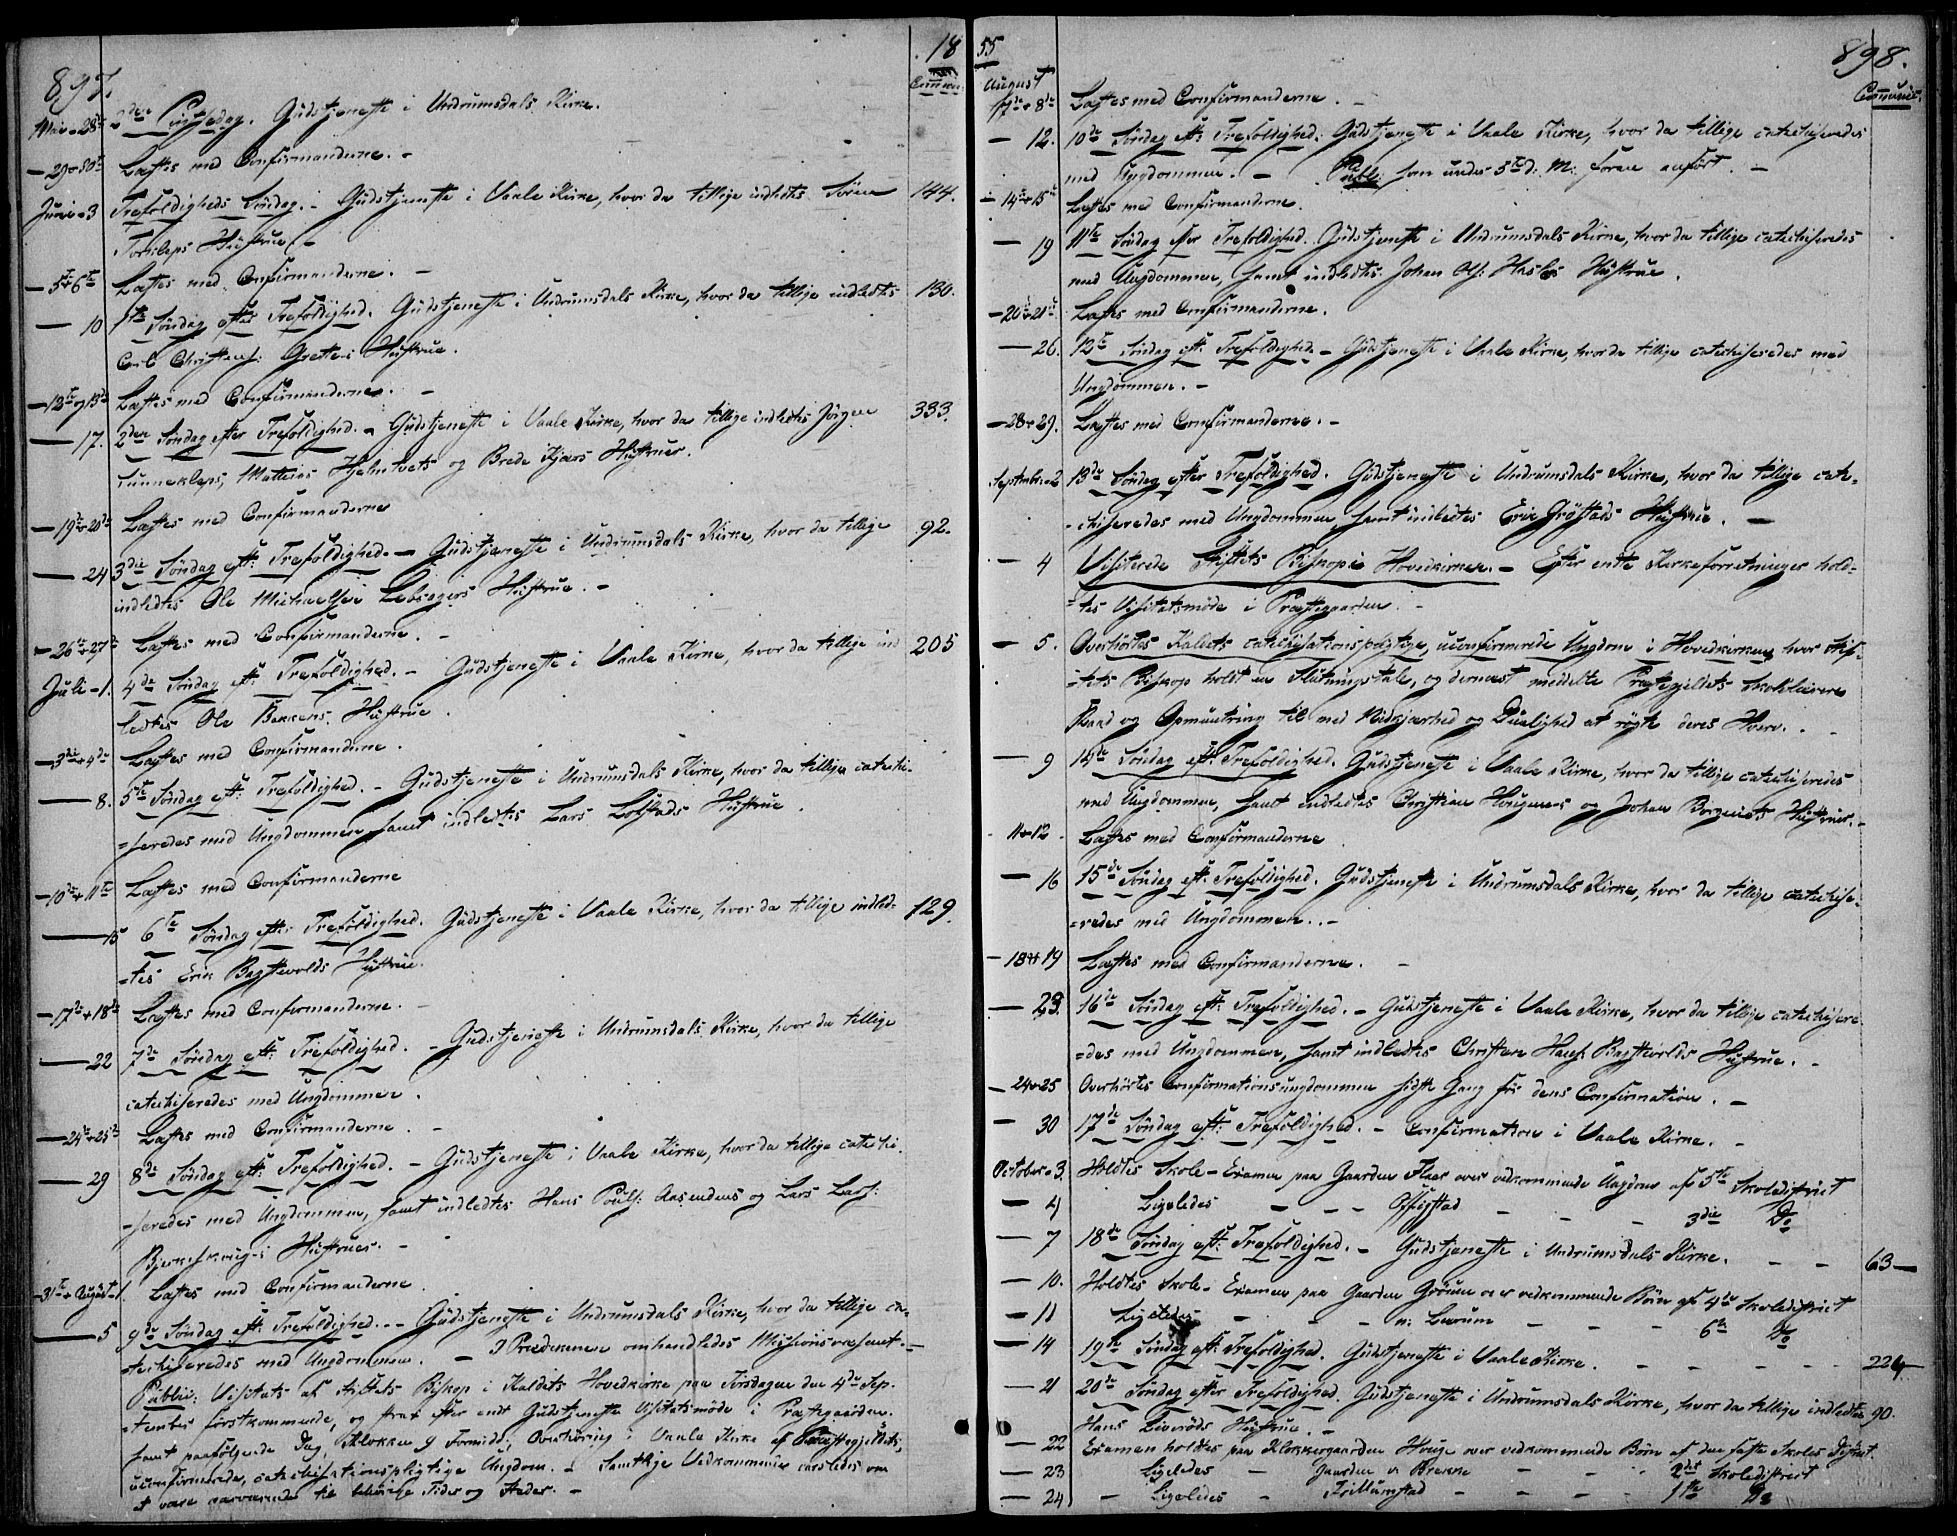 897.
18
Commun.
Mai - 28de 2den Pintsedag. Gudstjeneste i Undrumsdals Kirke.
- 29 + 30te Læstes med Confirmanderne. -
Juni - 3 Trefoldigheds Søndag. - Gudstjeneste i Vaale Kirke, hvor da tillige indledtes Sören 144.
Hustrue -
- 5te + 6te Læstes med Confirmanderne. -
- 10 1ste Søndag efter Trefoldighed. Gudstjeneste i Undrumsdals Kirke, hvor da tillige indledtes 130.
Carl Christens: Grette-s Hustrue.
- 12te og 13de Læstes med Confirmanderne. -
- 17. 2den Søndag efter Trefoldighed. - Gudstjeneste i Vaale Kirke, hvor da tillige indledtes Jörgen 333.
Mathias Hjelmtvets og Brede Kjærs Hustruer.
- 19de + 20de Læstes med Confirmanderne
- 24 3die Søndag eft: Trefoldighed. - Gudstjeneste i Undrumsdals Kirke, hvor da tillige 92.
indledtes Ole Michaelsen Hustrue. -
- 26de + 27de Læstes med Confirmanderne. -
Juli - 1. 4de Søndag eft: Trefoldighed. - Gudstjeneste i Vaale Kirke, hvor da tillige ind 205
ledtes Ole Bakkens Hustrue.
- 3die + 4de Læstes med Confirmanderne.
- 8. 5te Søndag eft: Trefoldighed. - Gudstjeneste i Undrumsdals Kirke, hvor da tillige catechi-
=seredes med Ungdommen samt indledtes Lars Löfstads Hustrue.
- 10de + 11te Læstes med Confirmanderne
- 15 6te Søndag efter Trefoldighed. Gudstjeneste i Vaale Kirke, hvor da tillige indled- 129.
=tes Erik Bagstevolds Hustrue.
- 17de + 18de Læstes med Confirmanderne. -
- 22 7de Søndag eft: Trefoldighed. - Gudstjeneste i Undrumsdals Kirke, hvor da tillige
catechiseredes med Ungdommen.
- 24de + 25de Læstes med Confirmanderne. -
- 29 8de Søndag eft: Trefoldighed. - Gudstjeneste i Vaale Kirke, hvor da tillige catechi-
=seredes med Ungdommen, samt indledtes Hans Pouls: Aasendens og Lars Lars:
Bjerkeskoug-s Hustruer. -
- 31te + August - 1. Læstes med Confirmanderne.
- 5 9de Søndag eft: Trefoldighed. - Gudstjeneste i Undrumsdals Kirke, hvor da tillige ca-
=techiseredes med Ungdommen. - I Prædikenen omhandledes Missionsvæsenet. -
Public: Visitats af Stiftets Biskop i Kaldets Hovedkirke paa Tirsdagen den 4de Sep-
=tember förstkommende, og strax efter endt Gudstjeneste Visitatsmøde i Præstegaarden.
samt paafölgende Dag, Klokken 9 Formidd:, Overhöring i Vaale Kirke af Præstegjeldets
uconfirmerede, catechisationspligtige Ungdom. - Samtlige Vedkommende varsledes om
at være nærværende til behörige Tider og Steder. -
55
898.
Communic.
August
17de + 8de Læstes med Confirmanderne. -
- 12. 10de Søndag eft: Trefoldighed. Gudstjeneste i Vaale Kirke, hvor da tillige catechiseredes
med Ungdommen. - Publ: som under 5te d: M: foran anført. -
- 14de + 15de Læstes med Confirmanderne.
- 19 11te Søndag efter Trefoldighed. Gudstjeneste i Undrumsdals Kirke, hvor da tillige catechiseredes
med Ungdommen, samt indledtes Johan Ols: Hasles Hustrue.
- 20de + 21de Læstes med Confirmanderne.
- 26. 12te Søndag eft: Trefoldighed. - Gudstjeneste i Vaale Kirke, hvor da tillige catechiseredes med
Ungdommen. -
- 28 + 29. Læstes med Confirmanderne. -
September - 2 13de Søndag efter Trefoldighed. Gudstjeneste i Undrumsdals Kirke, hvor da tillige cate-
-chiseredes med Ungdommen, samt indledtes Eric Gröstads Hustrue. -
- 4 Visiterede Stiftets Biskop i Hovedkirken. - Efter endte Kirkeforretninger hold-
=tes Visitatsmøde i Præstegaarden. -
- 5. Overhörtes Kaldets catechisationspligtige, uconfirmerede Ungdom i Hovedkirken, hvor Stif-
-tets Biskop holdt en Slutningstale, og dernæst meddelte Præstegjeldets Skolelærere
Raad og Opmuntring til med Nidkjærhed og Duelighed at røgte deres Hverv. -
- 9 14de Søndag eft: Trefoldighed. Gudstjeneste i Vaale Kirke, hvor da tillige catechiseredes
med Ungdommen, samt indledtes Christian Hougens og Johan Hustruer. -
- 11 + 12. Læstes med Confirmanderne
- 16 15de Søndag eft: Trefoldighed. Gudstjeneste i Undrumsdals Kirke, hvor da tillige catechise-
=redes med Ungdommen. -
- 18 + 19 Læstes med Confirmanderne. -
- 23. 16de Søndag eft: Trefoldighed. - Gudstjeneste i Vaale Kirke, hvor da tillige catechisere
=des med Ungdommen, samt indledtes Christen Hans: Bagstevolds Hustrue. -
- 24 + 25 Overhörtes Confirmationsungdommen sidste Gang för dens Confirmation. -
- 30 17de Søndag eft: Trefoldighed. - Confirmation i Vaale Kirke. -
October - 3. Holdtes Skole-Examen paa Gaarden Flaar over vedkommende Ungdom af 5te Skoledistrict
- 4 Ligeledes - - - - - - 3die Do
- 7 18de Søndag eft: Trefoldighed. - Gudstjeneste i Undrumsdals Kirke. - - 63 -
- 10. Holdtes Skole-Examen paa Gaarden over vedkommende Börn af 4de Skoledistrict
- 11 Ligeledes - - - n: - - - 6te Do
- 14 19de Søndag eft: Trefoldighed. Gudstjeneste i Vaale Kirke. - - - - 224
- 21 20de Søndag efter Trefoldighed. Gudstjeneste i Undrumsdals Kirke, hvor da tillige indledtes 90.
Hans Hustrue. -
- 22 Examen holdtes paa Klokkergaarden Houge over vedkommende Börn af den faste Skoles District.
- 23 Ligeledes - Gaarden n: Brekke - - - 2det Skoledistrict
- 24 - Ligeledes - - - - 1ste Do